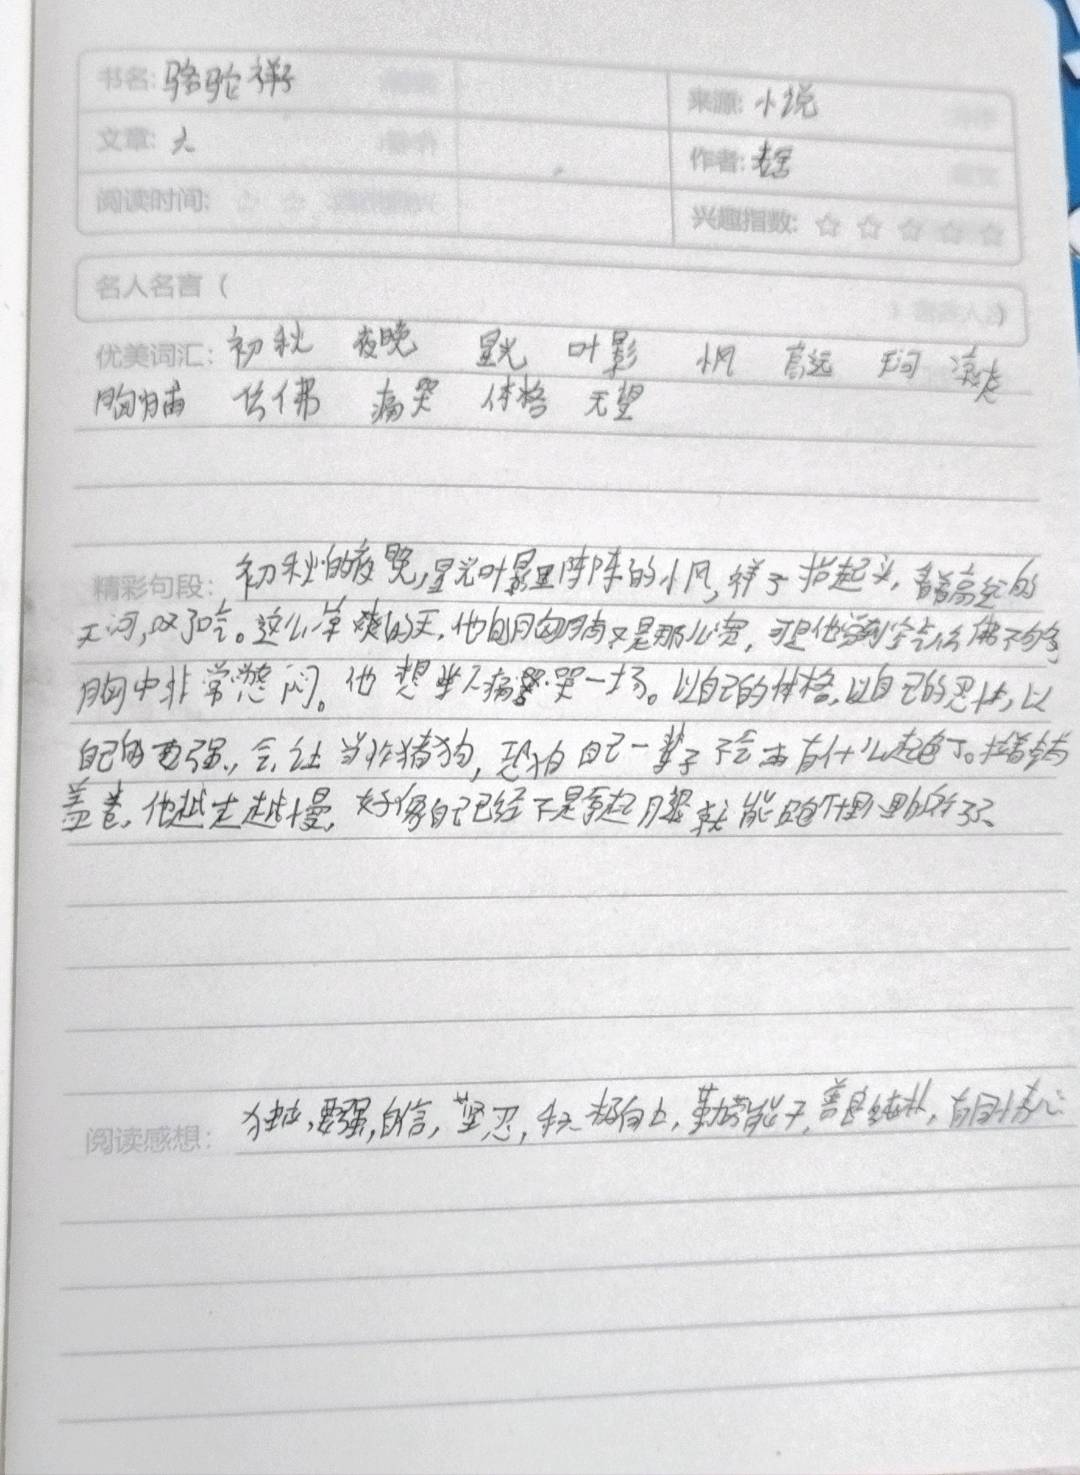 书名: 骆驼祥子
来源: 小说
文章: 六
作者: 老舍
阅读时间:
兴趣指数: ☆ ☆ ☆ ☆ ☆
名人名言(
优美词汇: 初秋 夜晚 星光 叶影 小风 高远 天河 凉爽
胸脯 仿佛 痛哭 体格 无望
精彩句段: 初秋的夜晚,星光叶影里阵阵的小风,祥子抬起头,看着高远的
天河,叹了口气。这么凉爽的天,他的胸脯又是那么宽,可是他觉到空气仿佛不够,
胸中非常憋闷。他想坐下痛哭一场。以自己的体格,以自己的忍性,以
自己的要强,会让当作猪狗,
自己一辈子不会再有什么起色了。拉着铺
盖卷,他越走越慢,好像自己已经不是拿起腿就能跑个十里八里的祥子了。
阅读感想: 要强,自信,坚忍,积极向上,勤劳能干,善良纯朴,有同情心